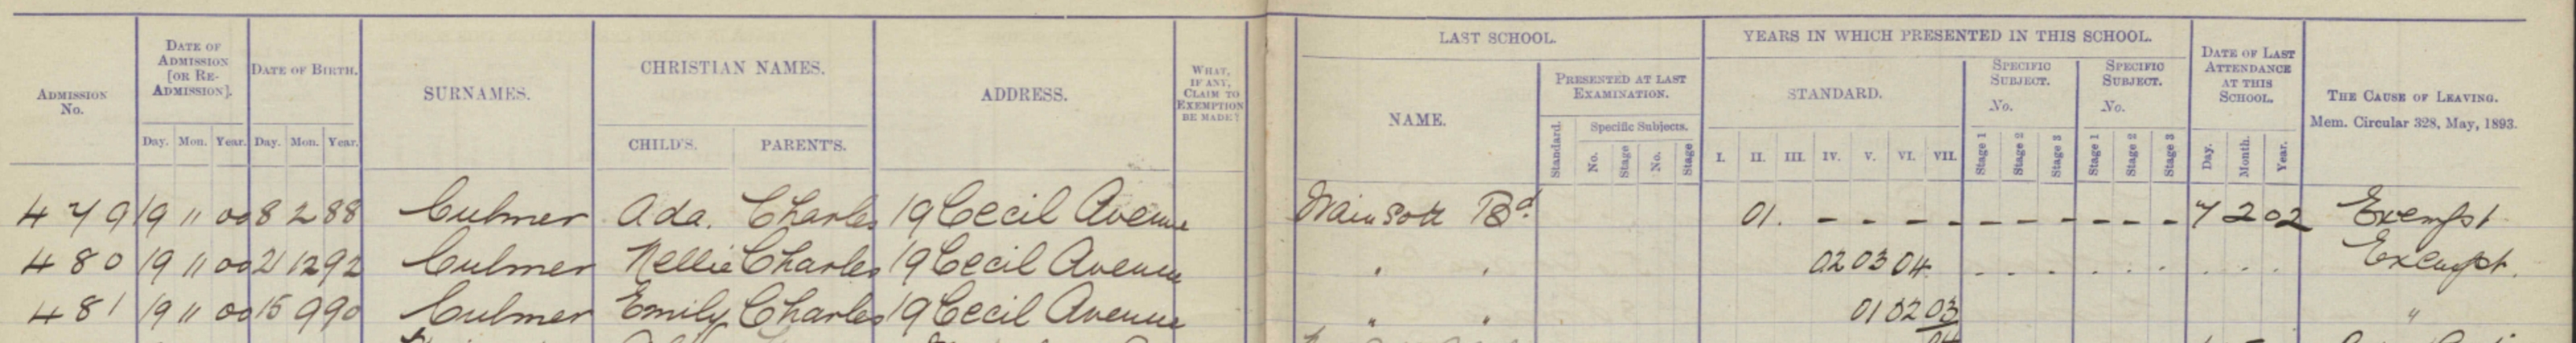 LAST SCHOOL. YEARS IN WHICH PRESENTED IN THIS SCHOOL.
ADMISSION No. DATE OF ADMISSION [OR RE-ADMISSION]. DATE OF BIRTH. SURNAMES. CHRISTIAN NAMES. ADDRESS. WHAT, IF ANY, CLAIM TO EXEMPTION BE MADE? NAME. PRESENTED AT LAST EXAMINATION. STANDARD. SPECIFIC SUBJECT. No. SPECIFIC SUBJECT. No. DATE OF LAST ATTENDANCE AT THIS SCHOOL. THE CAUSE OF LEAVING. Mem. Circular 328, May, 1893.
Day. Mon. Year. Day. Mon. Year. CHILD'S. PARENT'S. Standard. Specific Subjects. No. Stage No. Stage I. II. III. IV. V. VI. VII. Stage 1 Stage 2 Stage 3 Stage 1 Stage 2 Stage 3 Day. Month. Year.
479 19 11 00 8 2 88 Culmer Ada. Charles 19 Cecil Avenue Bd. 01. - - - - - - - - - - - 7 2 02 Exempt
480 19 11 00 21 12 92 Culmer Nellie Charles 19 Cecil Avenue " " 02 03 04 . . . . . . . . . Exempt.
481 19 11 00 15 9 90 Culmer Emily Charles 19 Cecil Avenue " " 01 02 03 "